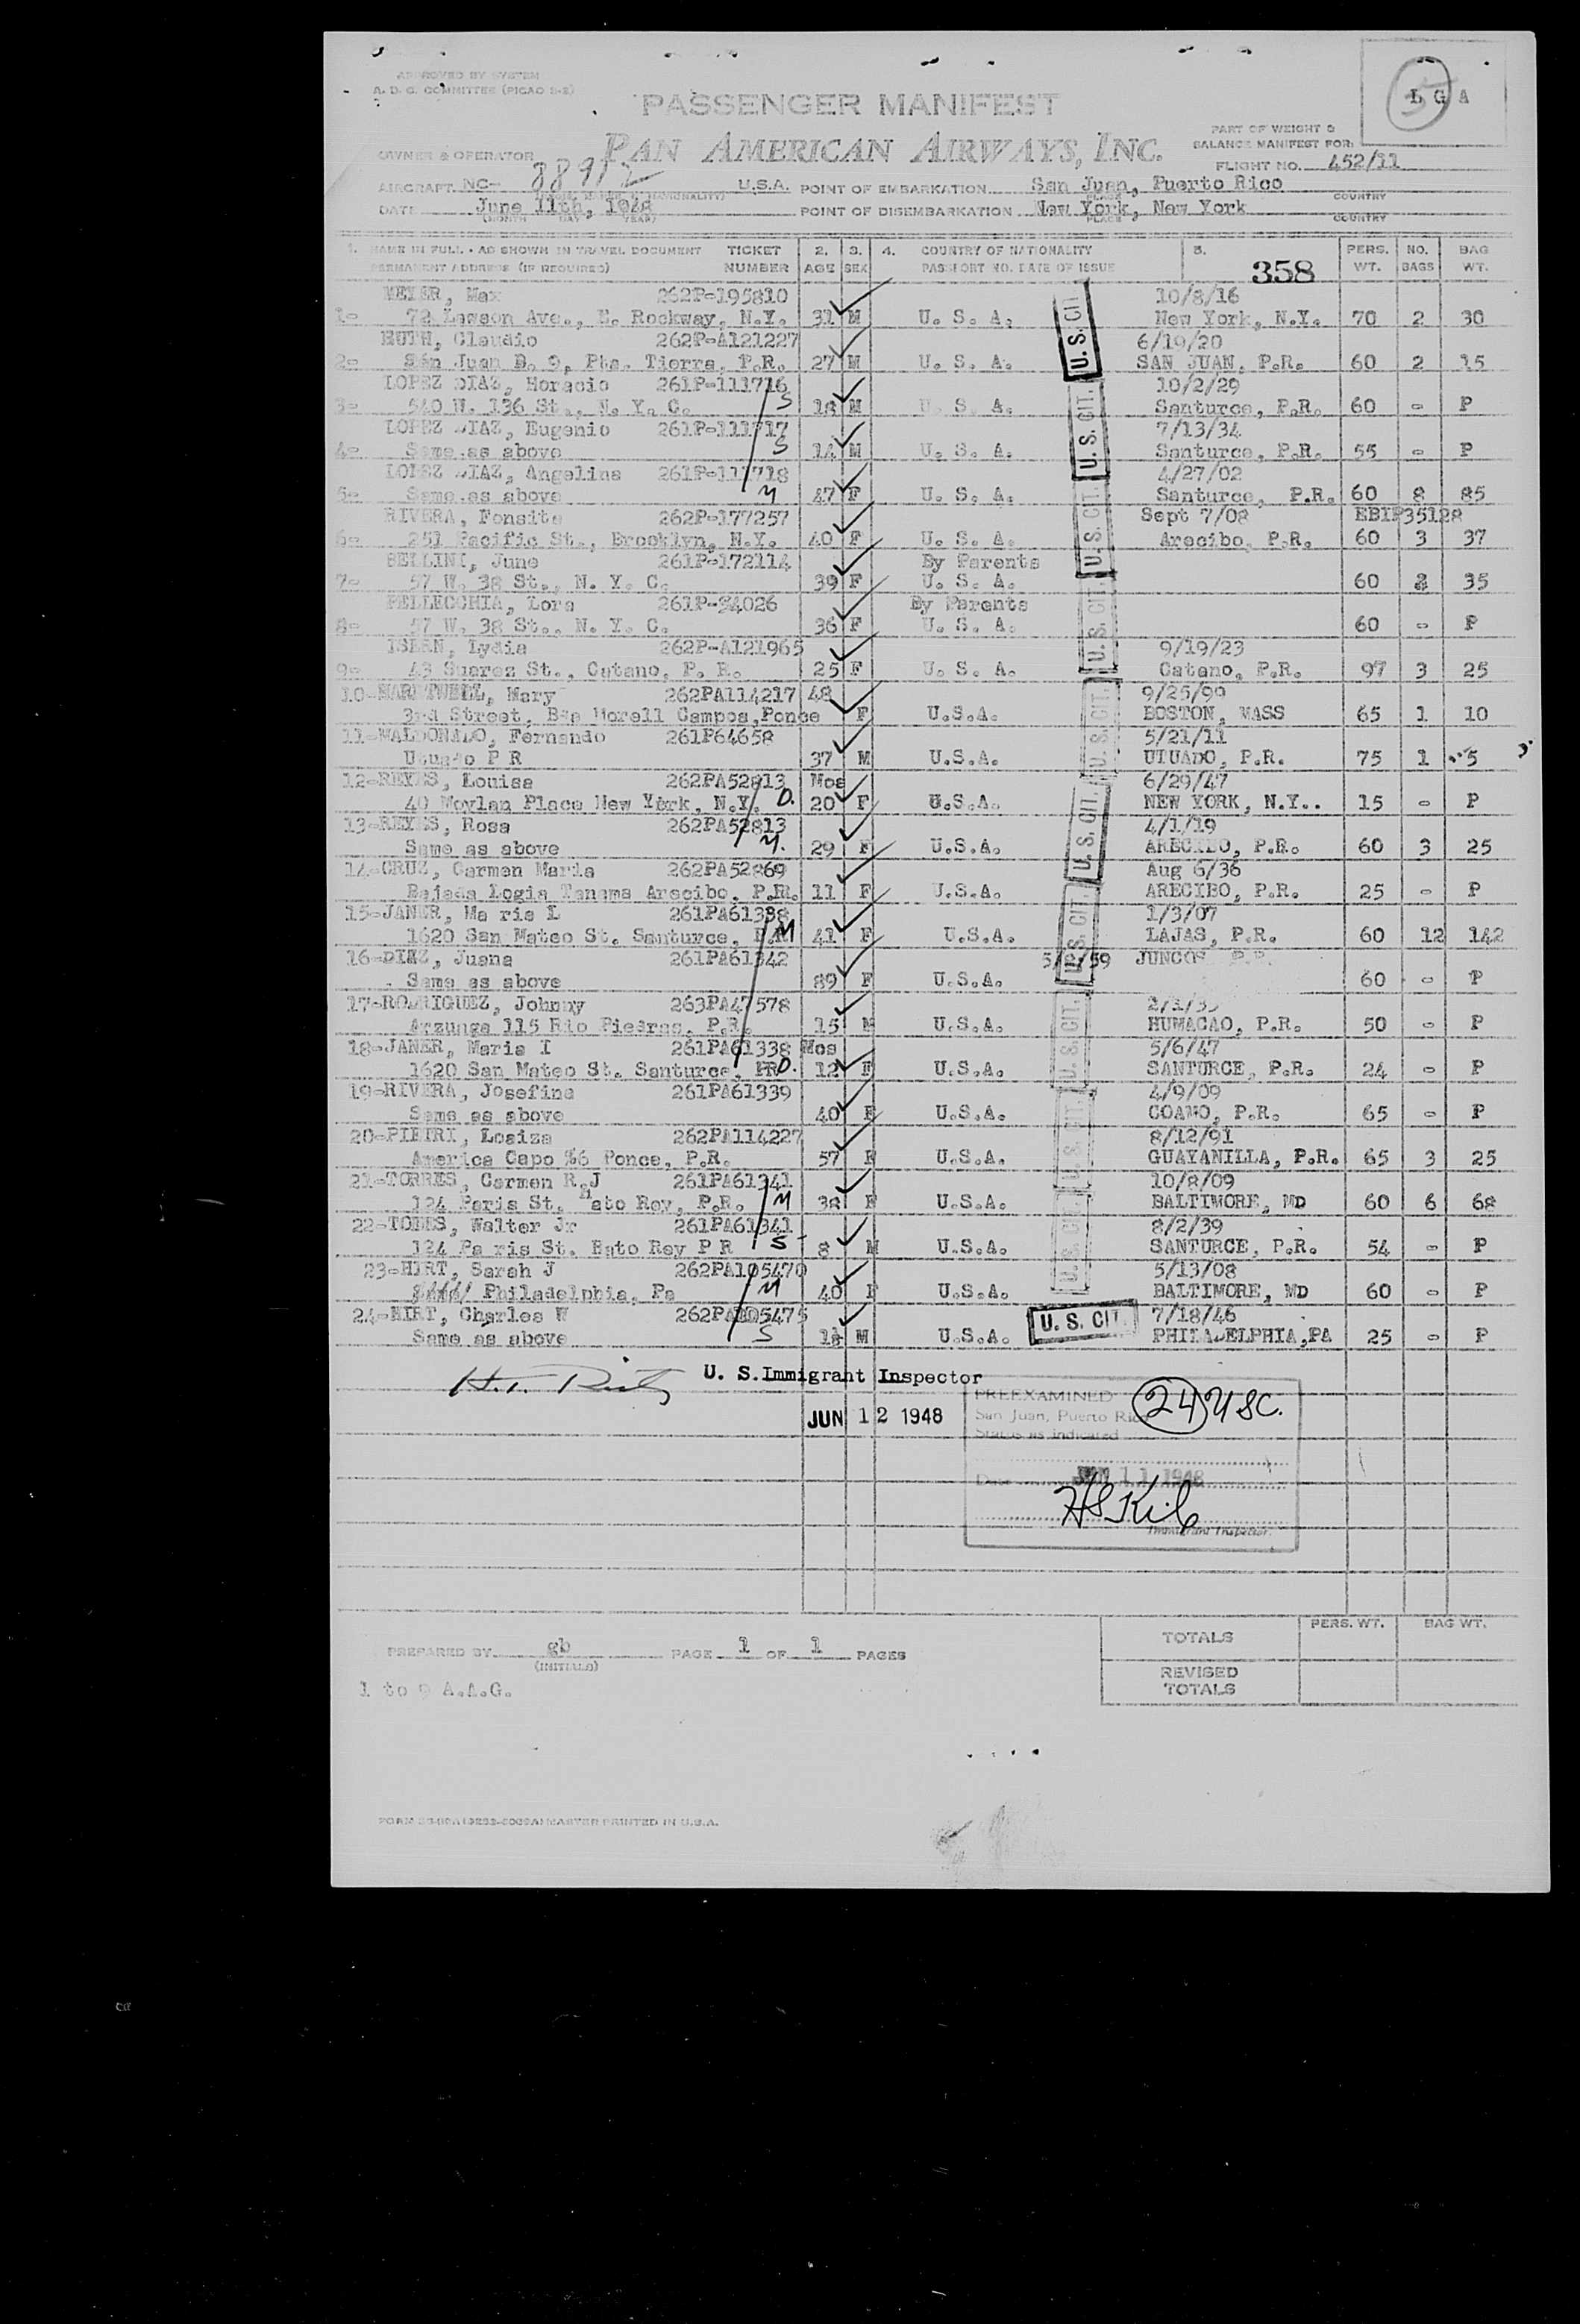 APPROVED BY SYSTEM
A. D. C. COMMITTEE (PICAO S-2)
L G A
5
PASSENGER MANIFEST
PART OF WEIGHT &
BALANCE MANIFEST FOR:
OWNER & OPERATOR PAN AMERICAN AIRWAYS, INC.
FLIGHT NO. 452/11
AIRCRAFT NC- 88912 U.S.A. POINT OF EMBARKATION San Juan, Puerto Rico
PLACE COUNTRY
DATE June 11th, 1948 POINT OF DISEMBARKATION New York, New York
(MONTH DAY YEAR) PLACE COUNTRY
1. NAME IN FULL - AS SHOWN IN TRAVEL DOCUMENT TICKET 2. 3. 4. COUNTRY OF NATIONALITY 5. PERS. NO. BAG
PERMANENT ADDRESS (IF REQUIRED) NUMBER AGE SEX PASSPORT NO. DATE OF ISSUE 358 WT. BAGS WT.
MEYER, Max 262P-195810 10/8/16
1- 72 Lawson Ave., E. Rockway, N.Y. 31 M U. S. A. New York, N.Y. 70 2 30
RUTH, Claudio 262P-A121227 6/19/20
2- San Juan B. 9, Pta. Tierra, P.R. 27 M U. S. A. SAN JUAN, P.R. 60 2 15
LOPEZ DIAZ, Horacio 261P-111716 10/2/29
3- 540 W. 136 St., N. Y. C. S 18 M U. S. A. Santurce, P.R. 60 - P
LOPEZ DIAZ, Eugenio 261P-111717 7/13/34
4- Same as above S 14 M U. S. A. Santurce, P.R. 55 - P
LOPEZ DIAZ, Angelina 261P-111718 4/27/02
5- Same as above M 47 F U. S. A. Santurce, P.R. 60 8 85
RIVERA, Fonsita 262P-177257 Sept 7/08 EBIP35128
6- 251 Pacific St., Brooklyn, N.Y. 40 F U. S. A. Arecibo, P.R. 60 3 37
BELLINI, June 261P-172114 By Parents
7- 57 W. 38 St., N. Y. C. 39 F U. S. A. 60 2 35
PELLECCHIA, Lora 261P-94026 By Parents
8- 57 W. 38 St., N. Y. C. 36 F U. S. A. 60 - P
ISERN, Lydia 262P-A121965 9/19/23
9- 43 Suarez St., Catano, P. R. 25 F U. S. A. Catano, P.R. 97 3 25
10- Mary 262PA114217 48 9/25/99
3rd Street, Bda Morell Campos,Ponce F U.S.A. BOSTON, MASS 65 1 10
11-MALDONADO, Fernando 261P64658 5/21/11
Utuado P R 37 M U.S.A. UTUADO, P.R. 75 1 5
12-REYES, Louisa 262PA52813 Mos 6/29/47
40 Moylan Place New York, N.Y. D. 20 F U.S.A. NEW YORK, N.Y.. 15 - P
13-REYES, Rosa 262PA52813 4/1/19
Same as above M. 29 F U.S.A. ARECIBO, P.R. 60 3 25
14-CRUZ, Carmen Maria 262PA52869 Aug 6/36
Bajada Logia Tanama Arecibo, P.R. 11 F U.S.A. ARECIBO, P.R. 25 - P
15-JANER, Ma ria L 261PA61338 1/3/07
1620 San Mateo St. Santurce, M 41 F U.S.A. LAJAS, P.R. 60 12 142
16-DIAZ, Juana 261PA61342 59 JUNCOS P.R.
Same as above 89 F U.S.A. 60 - P
17-RODRIGUEZ, Johnny 263PA47578
Arzunga 115 Rio Piedras, P.R. 15 M U.S.A. HUMACAO, P.R. 50 - P
18-JANER, Maria I 261PA61338 Mos 5/6/47
1620 San Mateo St. Santurce, PR D. 12 F U.S.A. SANTURCE, P.R. 24 - P
19-RIVERA, Josefina 261PA61339 4/9/09
Same as above 40 F U.S.A. COAMO, P.R. 65 - P
20-PIETRI, Loaiza 262PA114227 8/12/91
America Capo 56 Ponce, P.R. 57 F U.S.A. GUAYANILLA, P.R. 65 3 25
21-TORRES, Carmen R.J 261PA61341 10/8/09
124 Paris St. Hato Rey, P.R. M 38 F U.S.A. BALTIMORE, MD 60 6 68
22- Walter Jr 261PA61341 8/2/39
124 Pa ris St. Hato Rey P R S 8 M U.S.A. SANTURCE, P.R. 54 - P
23-HIRT, Sarah J 262PA105470 5/13/08
Philadelphia, Pa M 40 F U.S.A. BALTIMORE, MD 60 - P
24-HIRT, Charles W 262PA105475 7/18/46
Same as above S 1½ M U.S.A. PHILADELPHIA,PA 25 - P
U. S. CIT.
U. S. CIT.
U. S. CIT.
U. S. CIT.
U. S. CIT.
U. S. CIT.
U. S. CIT.
U. S. CIT.
U. S. CIT.
U. S. CIT.
U. S. CIT.
U. S. Immigrant Inspector
JUN 12 1948
PREEXAMINED
San Juan, Puerto Rico
Status as indicated
24 USC.
Date JUN 11 1948
Immigrant Inspector
TOTALS PERS. WT. BAG WT.
REVISED
TOTALS
PREPARED BY gb PAGE 1 OF 1 PAGES
(INITIALS)
1 to 9 A.A.G.
MASTER PRINTED IN U.S.A.